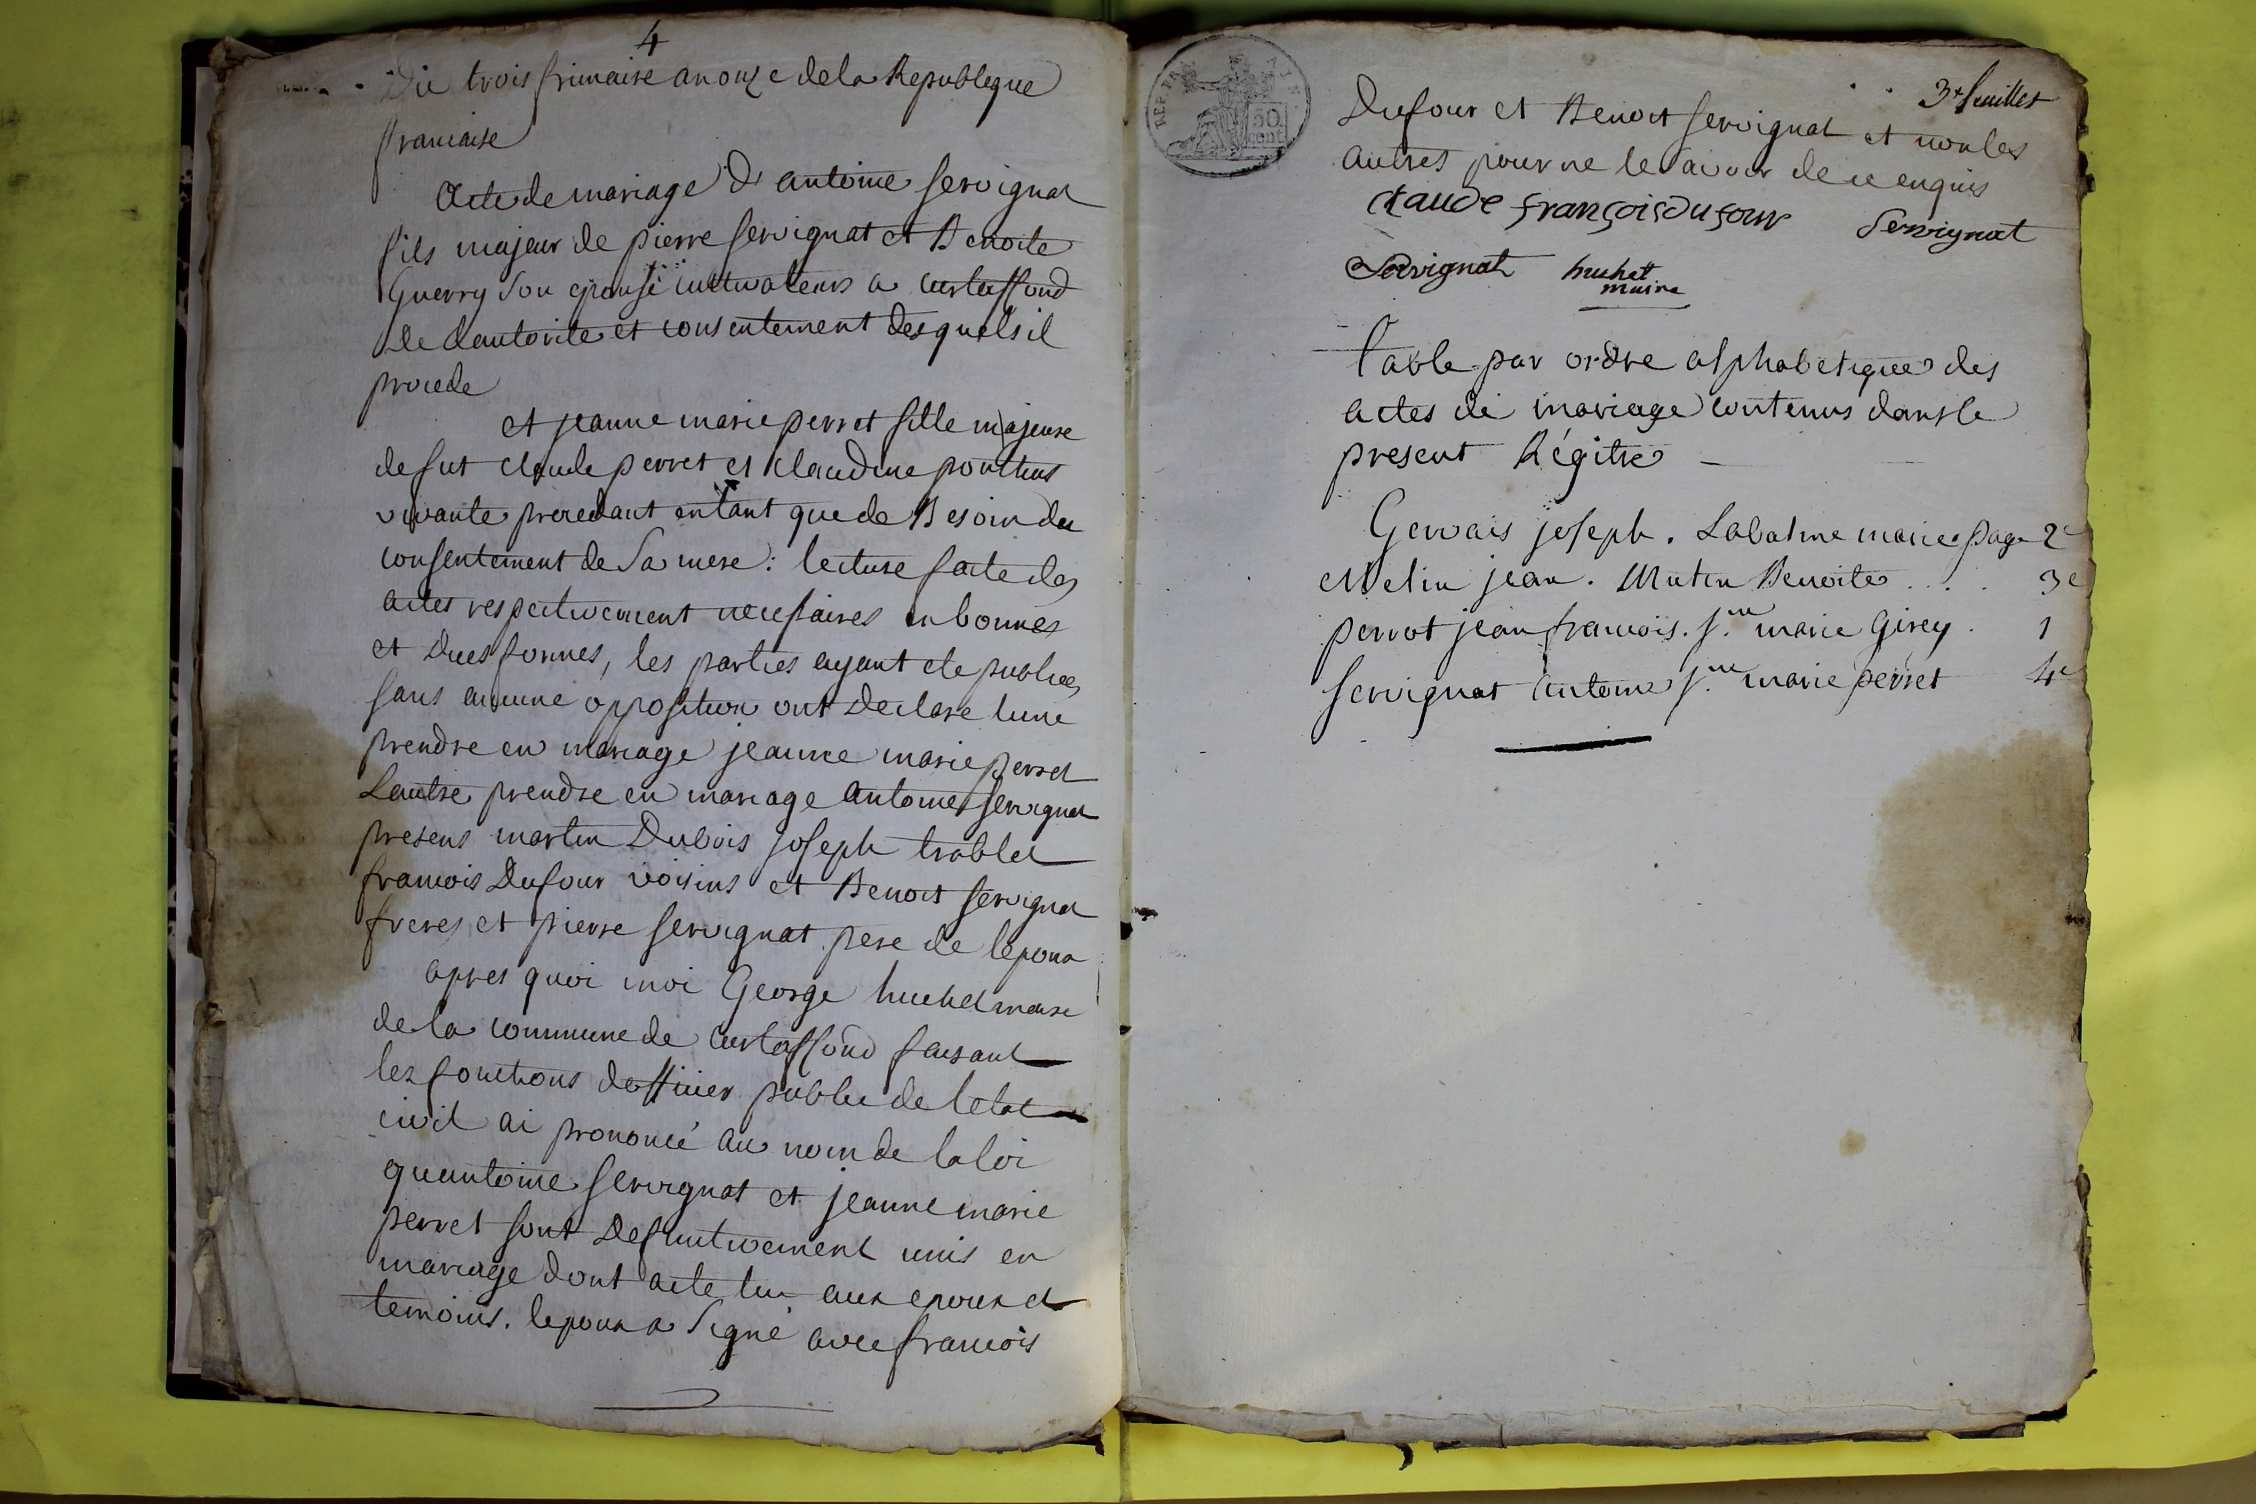 4
Du trois frimaire an onze de la Republique
francaise
Acte de mariage d'antoine servignat
fils majeur de pierre servignat et Benoite
Guerry son epouse cultivateurs a curtaffond
de Lautorité et consentement desquels il
procede
et jeanne marie perret fille majeure
de fut claude perret et claudine ponthus
vivante procedant entant que de Besoin du
consentement de sa mere : lecture faite des
actes respectivement necessaires en bonnes
et dues formes, les parties ayant ete publiees
sans aucune opposition ont declare lune
prendre en mariage jeanne marie perret
Lautre prendre en mariage antoine servignat
presens martin Dubois joseph trablet
francois Dufour voisins et Benoit servignat
freres et pierre servignat pere de lepoux
apres quoi moi George huchet maire
de la commune de curtaffond faisant
les fonctions dofficier public de letat
civil ai prononcé au nom de la loi
quantoine servignat et jeanne marie
perret sont definitivement unis en
mariage dont acte lu aux epoux et
temoins. lepoux a signé avec francois
3e feuillet
REP. FRA.
50
cent
Dufour et Benoit servignat et non les
autres pour ne le savoir de ce enquis
claude françois dufour servignat
Servignat huchet
maire
Table par ordre alphabetique des
actes de mariage contenus dans le
present Régitre
Gervais joseph . Labalme marie page 2e
Melin jean . Mutin Benoite . . . 3e
perrot jean francois . j.ne marie Girey . 1
servignat antoine j.ne marie perret 4e